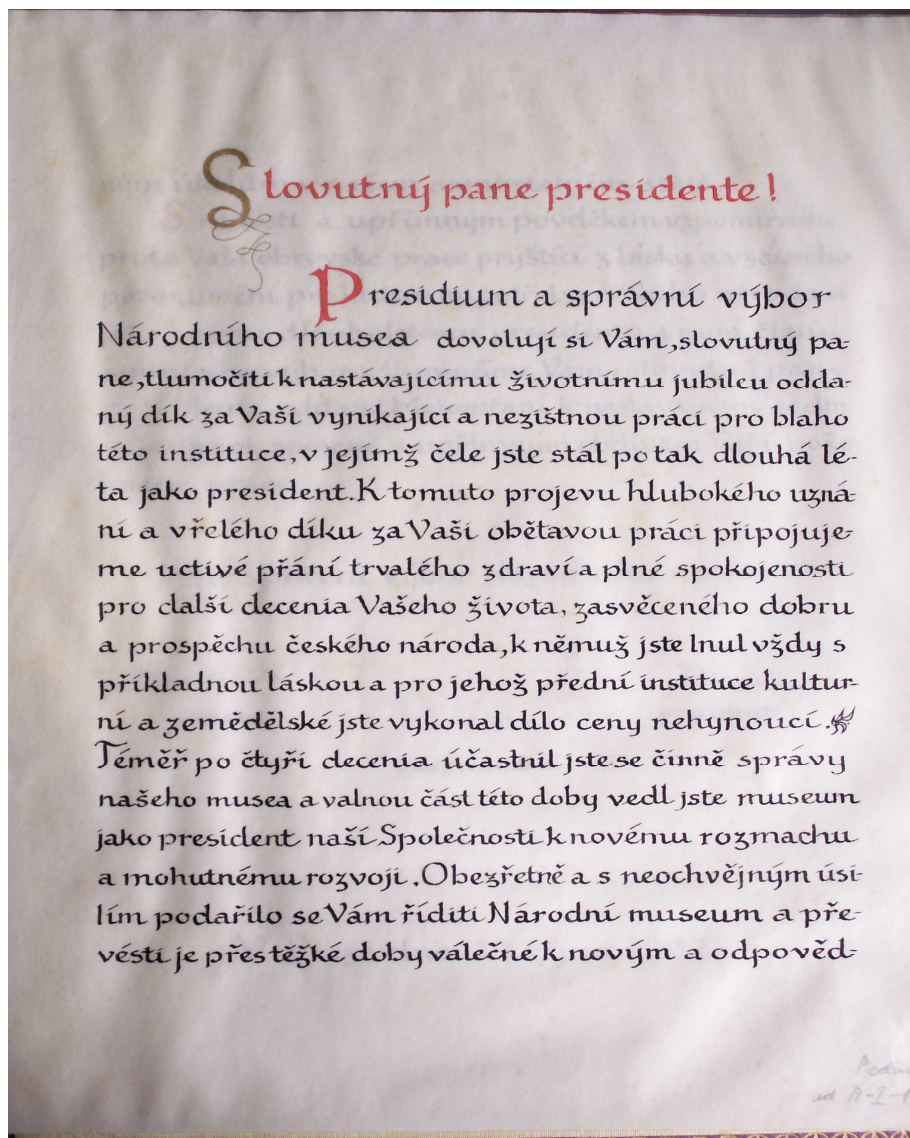 Slovutný pane presidente!
Presidium a správní výbor
Národního musea dovolují si Vám, slovutný pa-
ne, tlumočiti k nastávajícímu životnímu jubileu odda-
ný dík za Vaši vynikající a nezištnou práci pro blaho
této instituce, v jejímž čele jste stál po tak dlouhá lé-
ta jako president. K tomuto projevu hlubokého uzná-
ní a vřelého díku za Vaši obětavou práci připojuje-
me uctivé přání trvalého zdraví a plné spokojenosti
pro další decenia Vašeho života, zasvěceného dobru
a prospěchu českého národa, k němuž jste lnul vždy s
příkladnou láskou a pro jehož přední instituce kultur-
ní a zemědělské jste vykonal dílo ceny nehynoucí.
Téměř po čtyři decenia účastnil jste se činně správy
našeho musea a valnou část této doby vedl jste museum
jako president naší Společnosti k novému rozmachu
a mohutnému rozvoji. Obezřetně a s neochvějným úsi-
lím podařilo se Vám říditi Národní museum a pře-
vésti je přes těžké doby válečné k novým a odpověd-